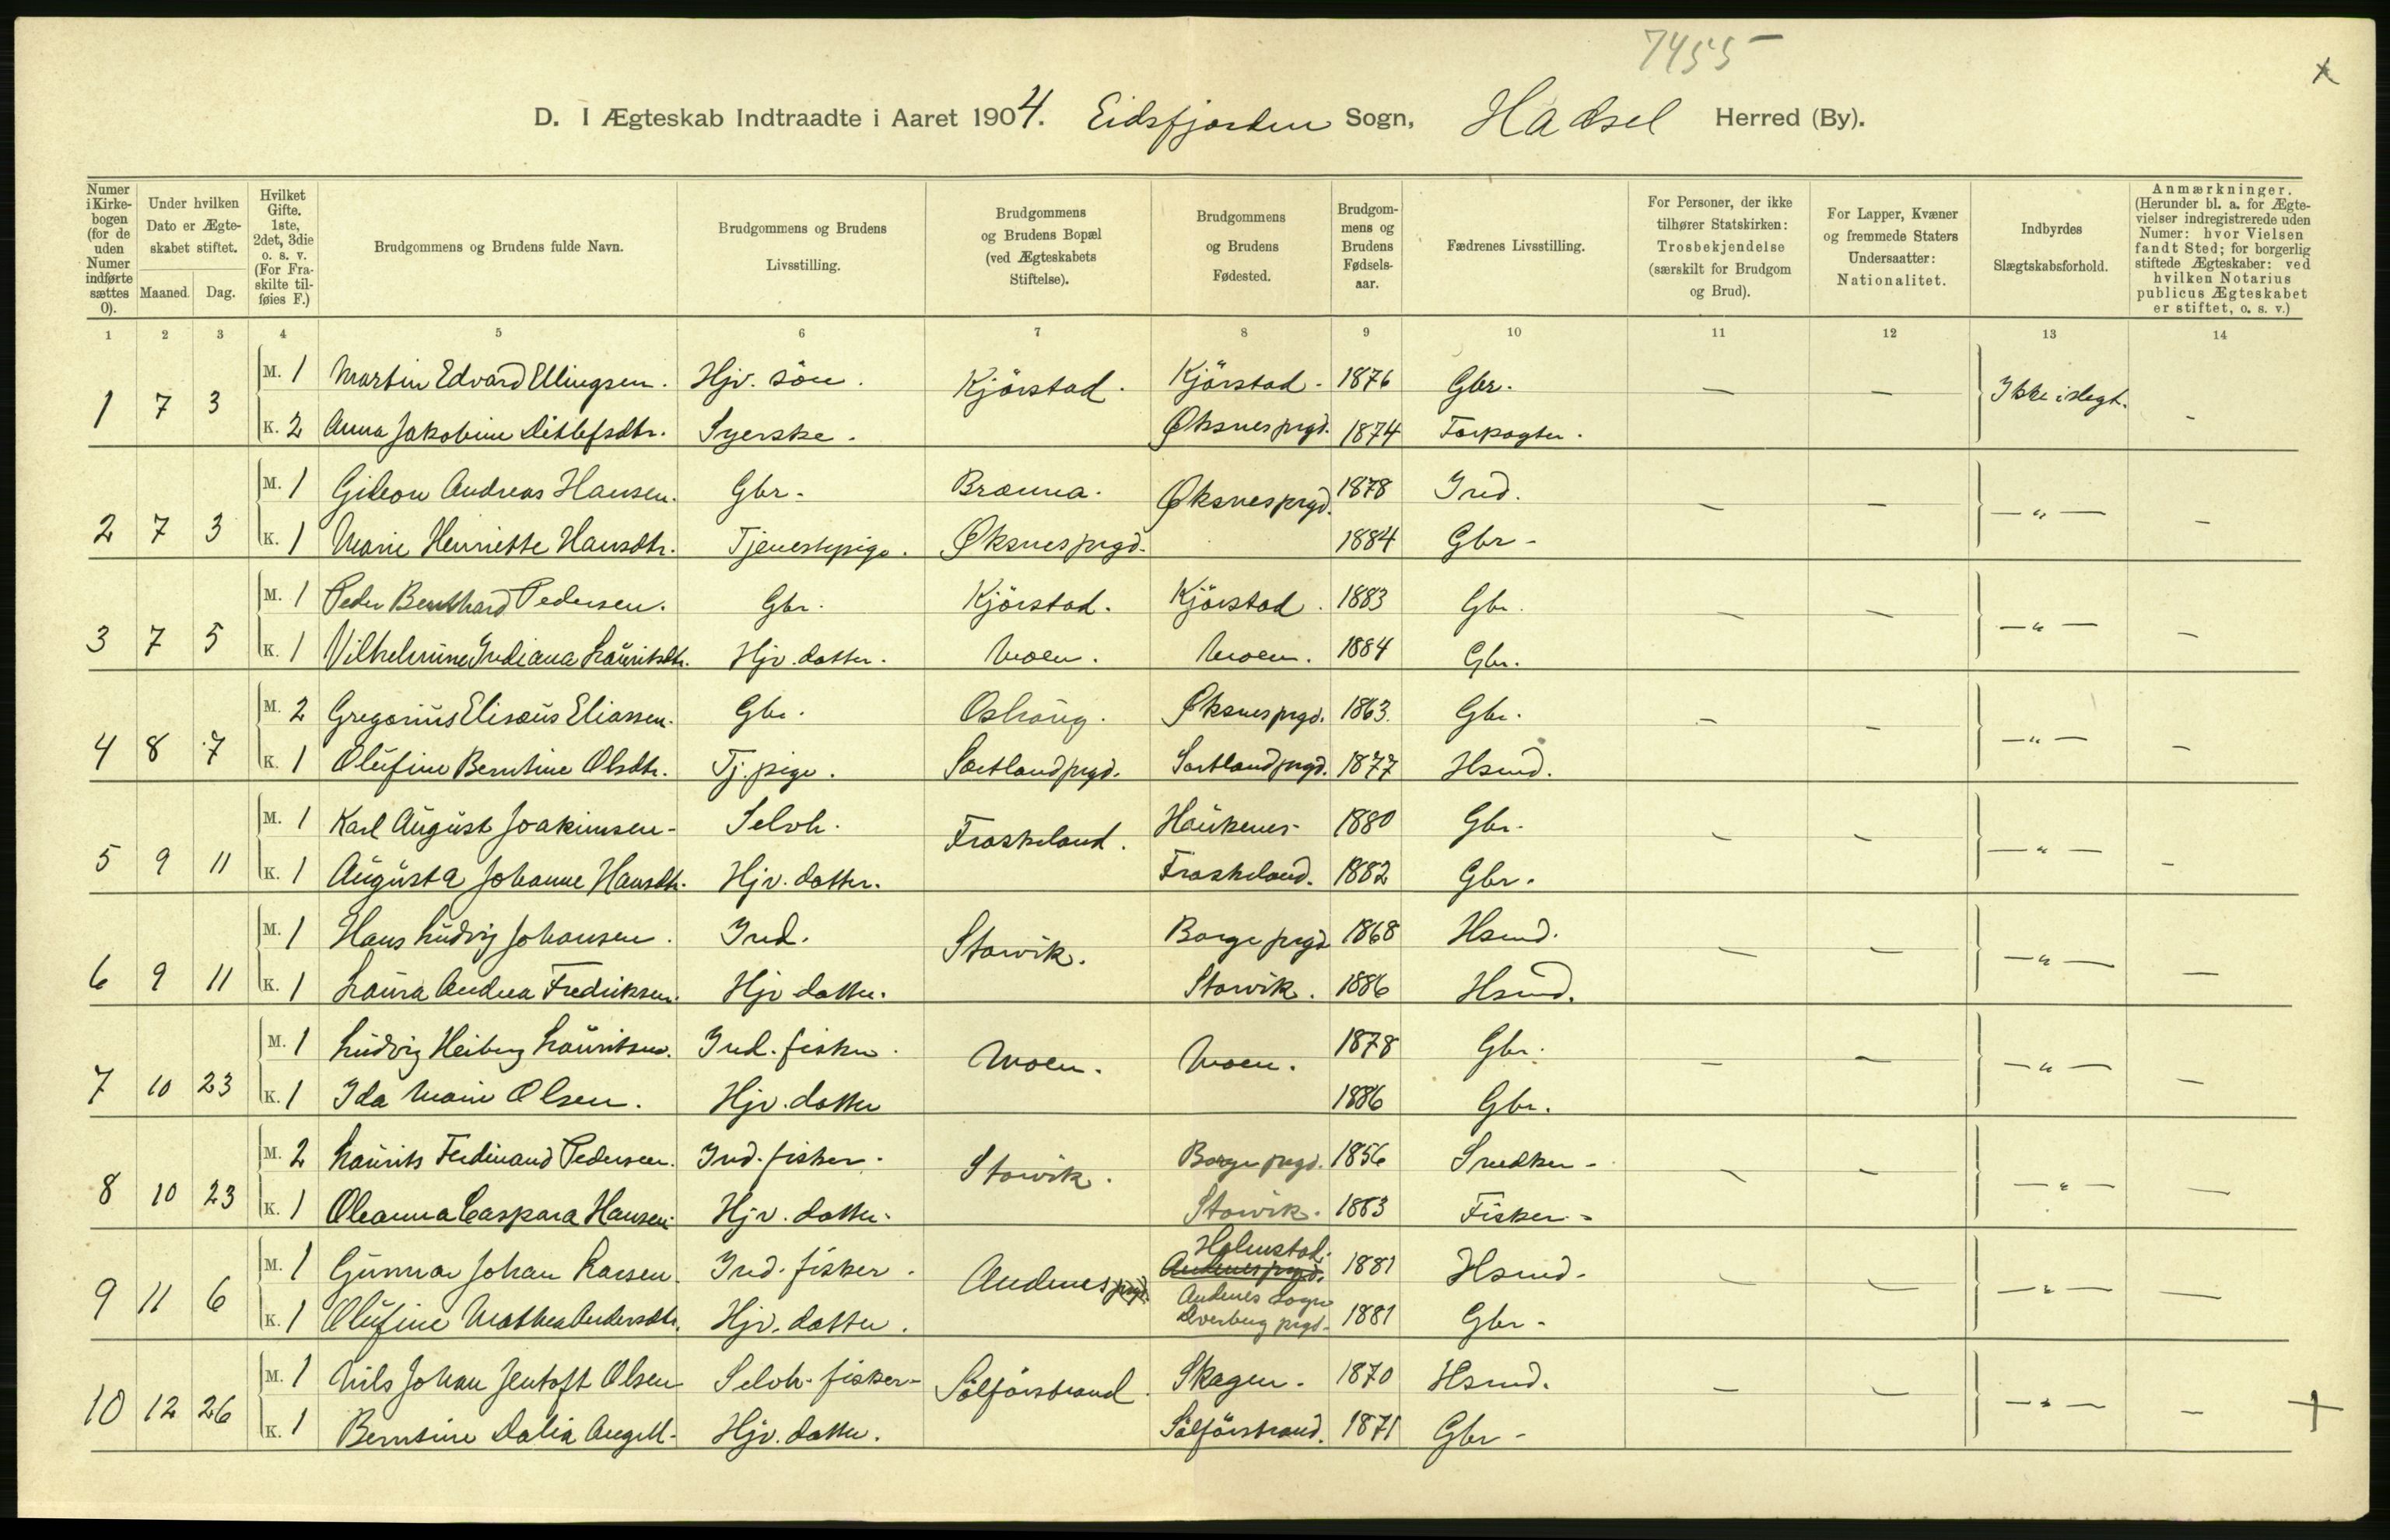 7455
x
D. I Ægteskab Indtraadte i Aaret 1904. Eidsfjorden Sogn, Hadsel Herred (By).
Numer i Kirke-bogen (for de uden Numer indførte sættes 0).
Under hvilken Dato er Ægte-skabet stiftet.
Maaned. Dag.
Hvilket Gifte. 1ste, 2det, 3die o. s. v. (For Fra-skilte til-føies F.)
Brudgommens og Brudens fulde Navn.
Brudgommens og Brudens Livsstilling.
Brudgommens og Brudens Bopæl (ved Ægteskabets Stiftelse).
Brudgommens og Brudens Fødested.
Brudgom-mens og Brudens Fødsels-aar.
Fædrenes Livsstilling.
For Personer, der ikke tilhører Statskirken: Trosbekjendelse (særskilt for Brudgom og Brud).
For Lapper, Kvæner og fremmede Staters Undersaatter: Nationalitet.
Indbyrdes Slægtskabsforhold.
Anmærkninger. (Herunder bl. a. for Ægte-vielser indregistrerede uden Numer: hvor Vielsen fandt Sted; for borgerlig stiftede Ægteskaber: ved hvilken Notarius publicus Ægteskabet er stiftet, o. s. v.)
1 2 3 4 5 6 7 8 9 10 11 12 13 14
M. 1 Martin Edvard Ellingsen. Hjv. sön. Kjörstad. Kjörstad. 1876 Gbr. — — Ikke i slegt.
1 7 3 K. 2 Anna Jakobine Ditlefsdtr. Syerske. Øksnes prgd. 1874 Forpagter. -
M. 1 Gideon Andreas Hansen. Gbr. Brænna. Øksnes prgd. 1878 Ind. — — — " —
2 7 3 K. 1 Marie Henriette Hansdtr. Tjenestepige. Øksnes prgd. 1884 Gbr. -
M. 1 Peder Bernthard Pedersen. Gbr. Kjörstad. Kjörstad. 1883 Gbr. — — — " —
3 7 5 K. 1 Vilhelmine Indiana Lauritsdtr. Hjv. datter. Moen. Moen. 1884 Gbr. -
M. 2 Gregorius Elisæus Eliassen. Gbr. Oshaug. Øksnes prgd. 1863. Gbr. — — — " —
4 8 7 K. 1 Olufine Berntine Olsdtr. Tj. pige. Sortland prgd. Sortland prgd. 1877 Hsmd. -
M. 1 Karl August Joakimsen. Selvh. Fraskeland. Haukenes. 1880 Gbr. — — — " —
5 9 11 K. 1 Augusta Johanne Hansdtr. Hjv. datter. Fraskeland. 1882 Gbr. -
M. 1 Hans Ludvig Johansen. Ind. Starvik. Borge prgd. 1868 Hsmd. — — — " —
6 9 11 K. 1 Laura Andrea Fredriksen. Hjv datter. Starvik. 1886 Hsmd. —
M. 1 Ludvig Heiberg Lauritsen. Ind. fisker. Moen. Moen. 1878 Gbr. — — — " —
7 10 23 K. 1 Ida Marie Olsen. Hjv. datter 1886 Gbr. —
M. 2 Laurits Ferdinand Pedersen. Ind. fisker. Starvik. Borge prgd. 1856 Snedker. — — — " —
8 10 23 K. 1 Oleanna Caspara Hansen. Hjv. datter. Starvik. 1863 Fisker. —
M. 1 Gunnar Johan Larsen. Ind. fisker. Andenes prgd. Holmstad. Andenes prgd. 1881 Hsmd. — — — " —
9 11 6 K. 1 Olufine Mathea Andersdtr. Hjv. datter. Andenes sogn Dverberg prgd. 1881 Gbr. —
M. 1 Nils Johan Jentoft Olsen Selvh. fisker. Sålförstrand. Skagen. 1870 Hsmd. — — — " — +
10 12 26 K. 1 Berntine Dalia Angell. Hjv. datter. Sålförstrand. 1871 Gbr. -